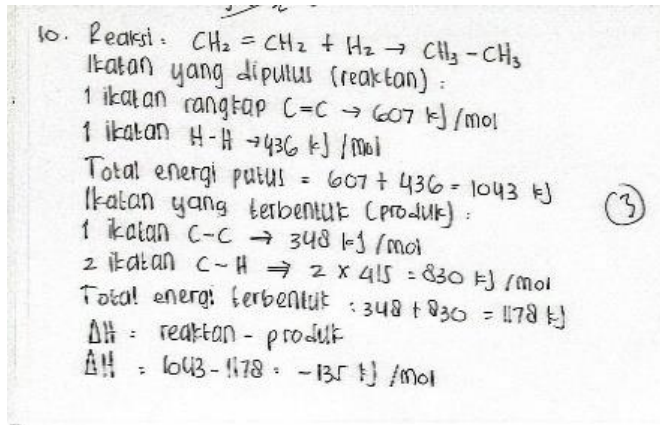 10. Reaksi : CH₂ = CH₂ + H₂ → CH₃ - CH₃
Ikatan yang diputus (reaktan) :
1 ikatan rangkap C=C → 607 kJ/mol
1 ikatan H-H → 436 kJ/mol
Total energi putus = 607 + 436 = 1043 kJ
Ikatan yang terbentuk (produk) :
3
1 ikatan C-C → 348 kJ/mol
2 ikatan C-H → 2 x 415 = 830 kJ/mol
Total energi terbentuk : 348 + 830 = 1178 kJ
ΔH = reaktan - produk
ΔH = 1043 - 1178 = -135 kJ/mol